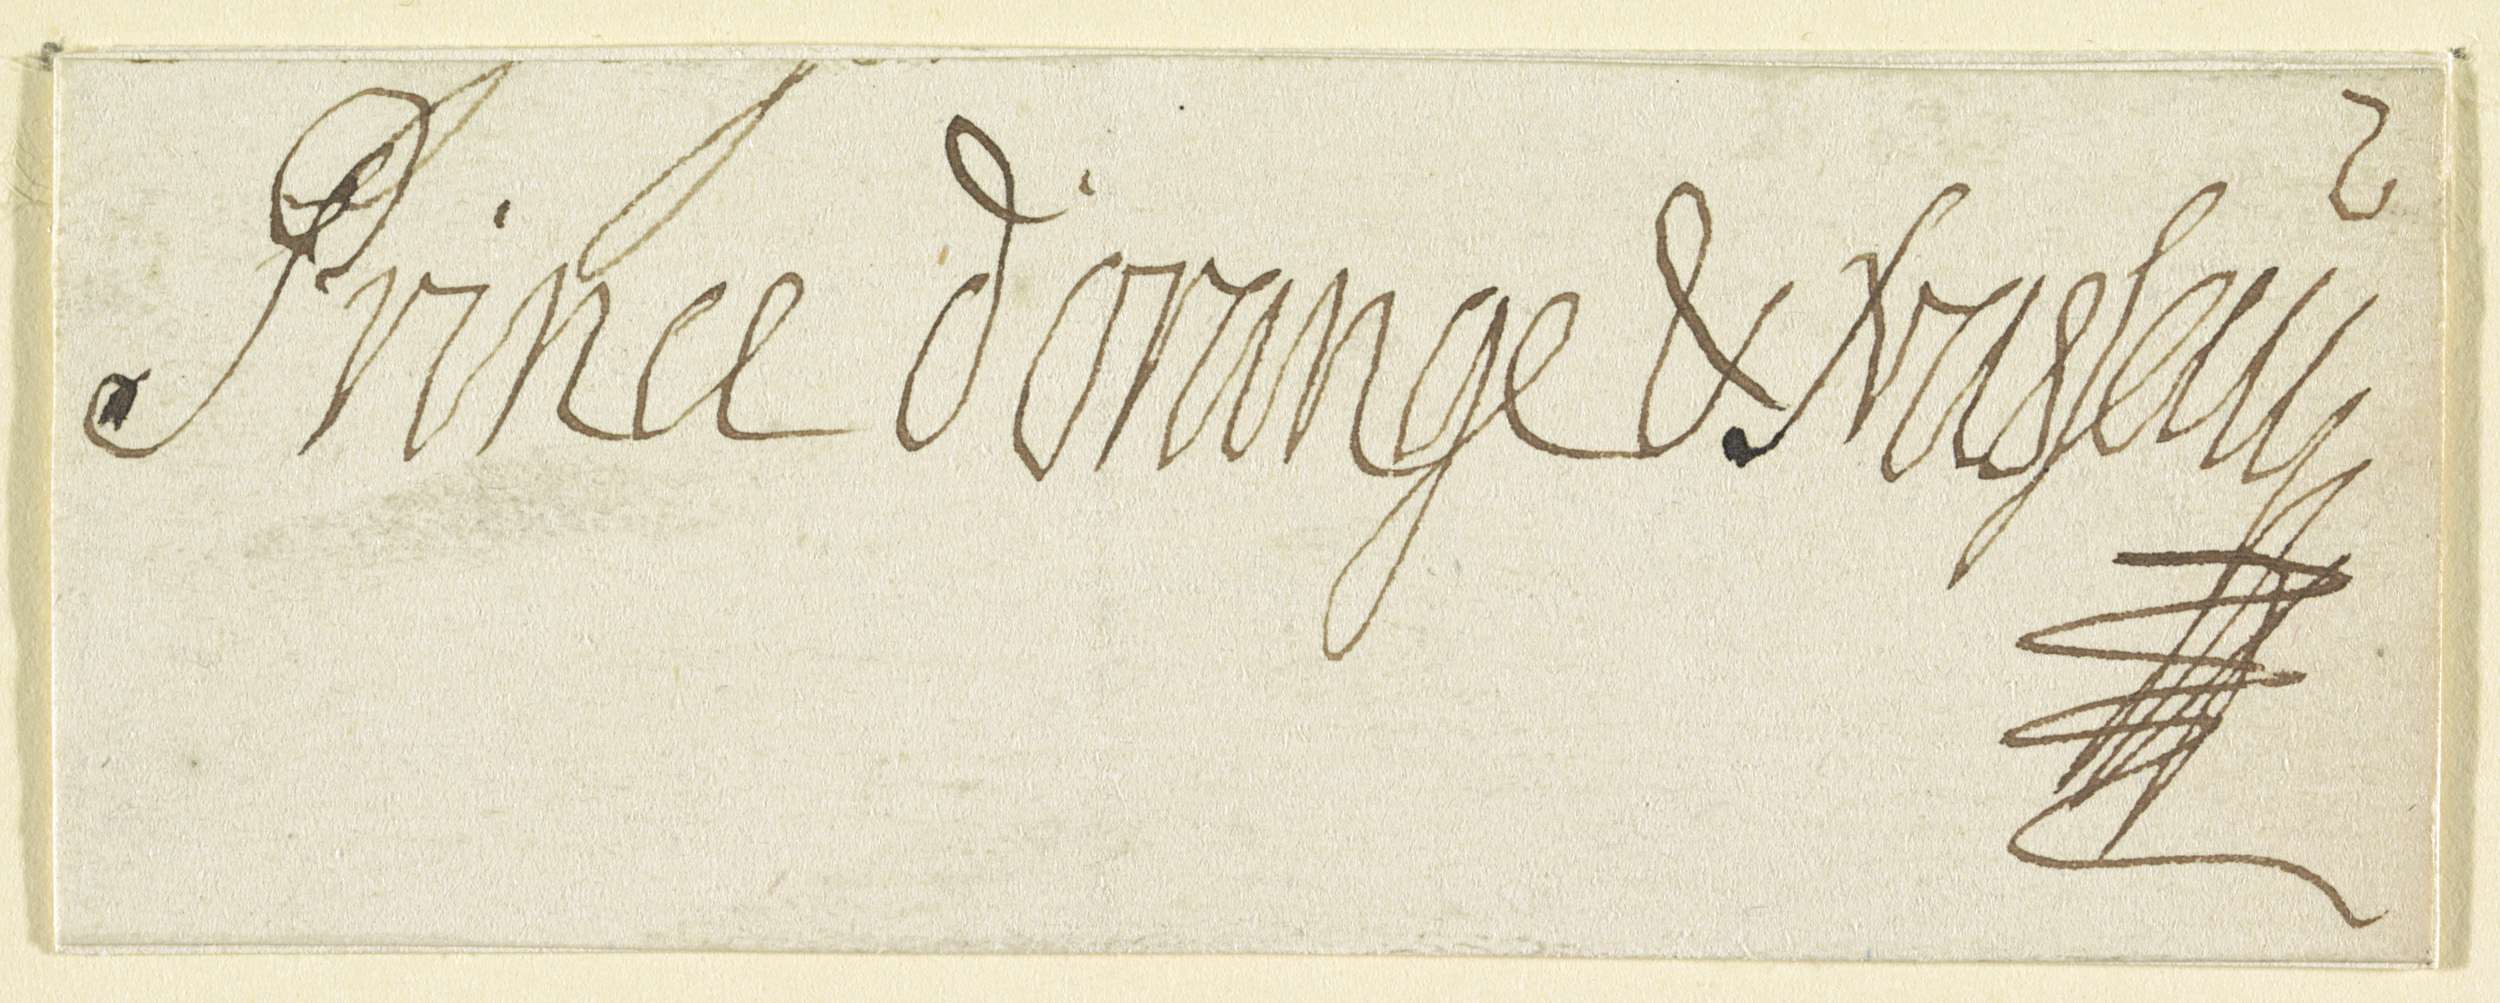 Prince d'orange & Nassau